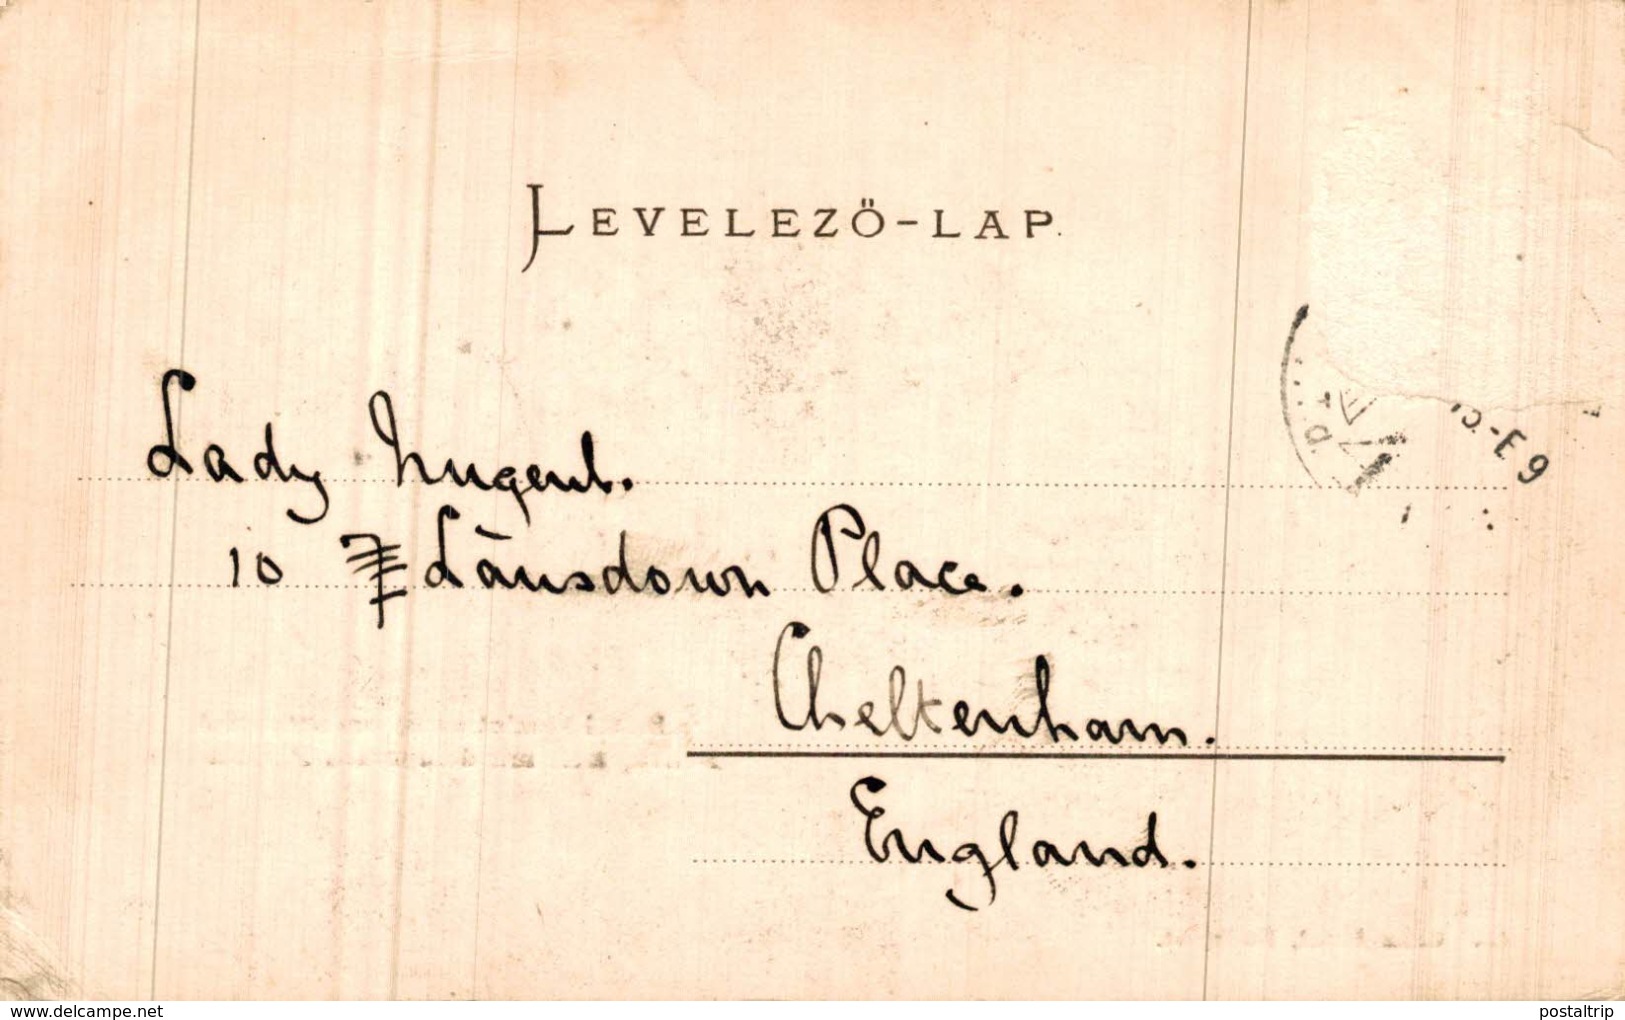 LEVELEZŐ-LAP.
Lady Nugent.
10 Lansdown Place.
Cheltenham.
England.
-E9
www.delcampe.net
postaltrip